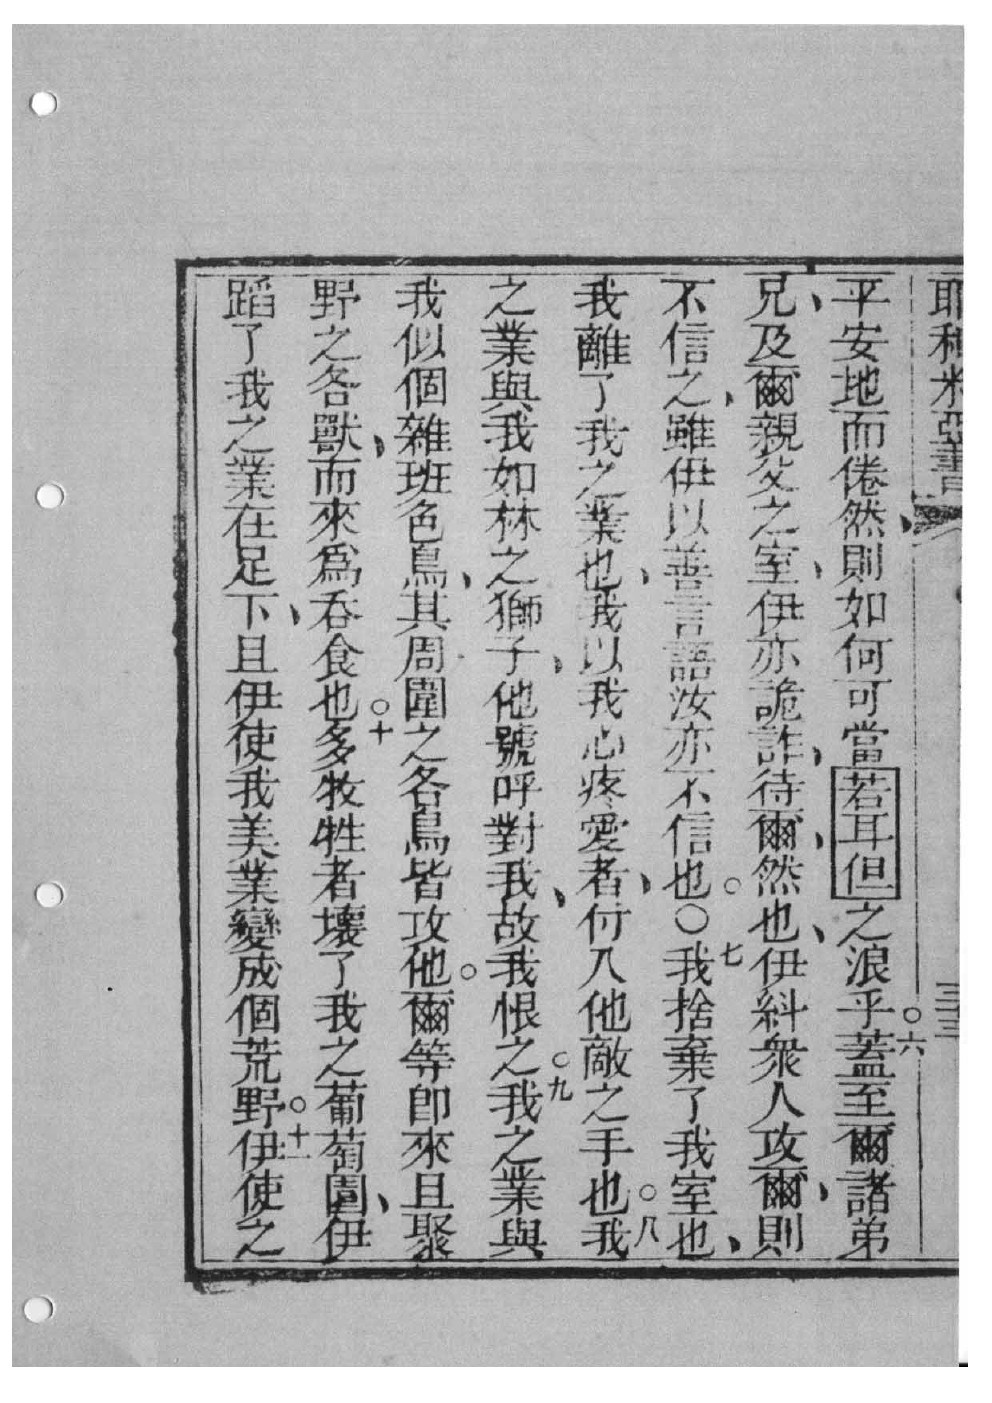 耶利米亞書 三三
平安地而倦然則如何可當若耳但之浪乎○六蓋至爾諸弟
兄及爾親父之室、伊亦詭詐、待爾、然也、伊糾衆人攻爾、則
不信之、雖伊以善言語汝亦不信也○〇七我捨棄了我室也、
我離了我之業也、我以我心疼愛者、付入他敵之手也○八我
之業與我如林之獅子、他號呼對我、故我恨之○九我之業與
我似個雜班色鳥、其周圍之各鳥皆攻他○爾等即來且聚
野之各獸、而來爲吞食也○十多牧牲者壞了我之葡萄園、伊
蹈了我之業在足下、且伊使我美業變成個荒野○十一伊使之